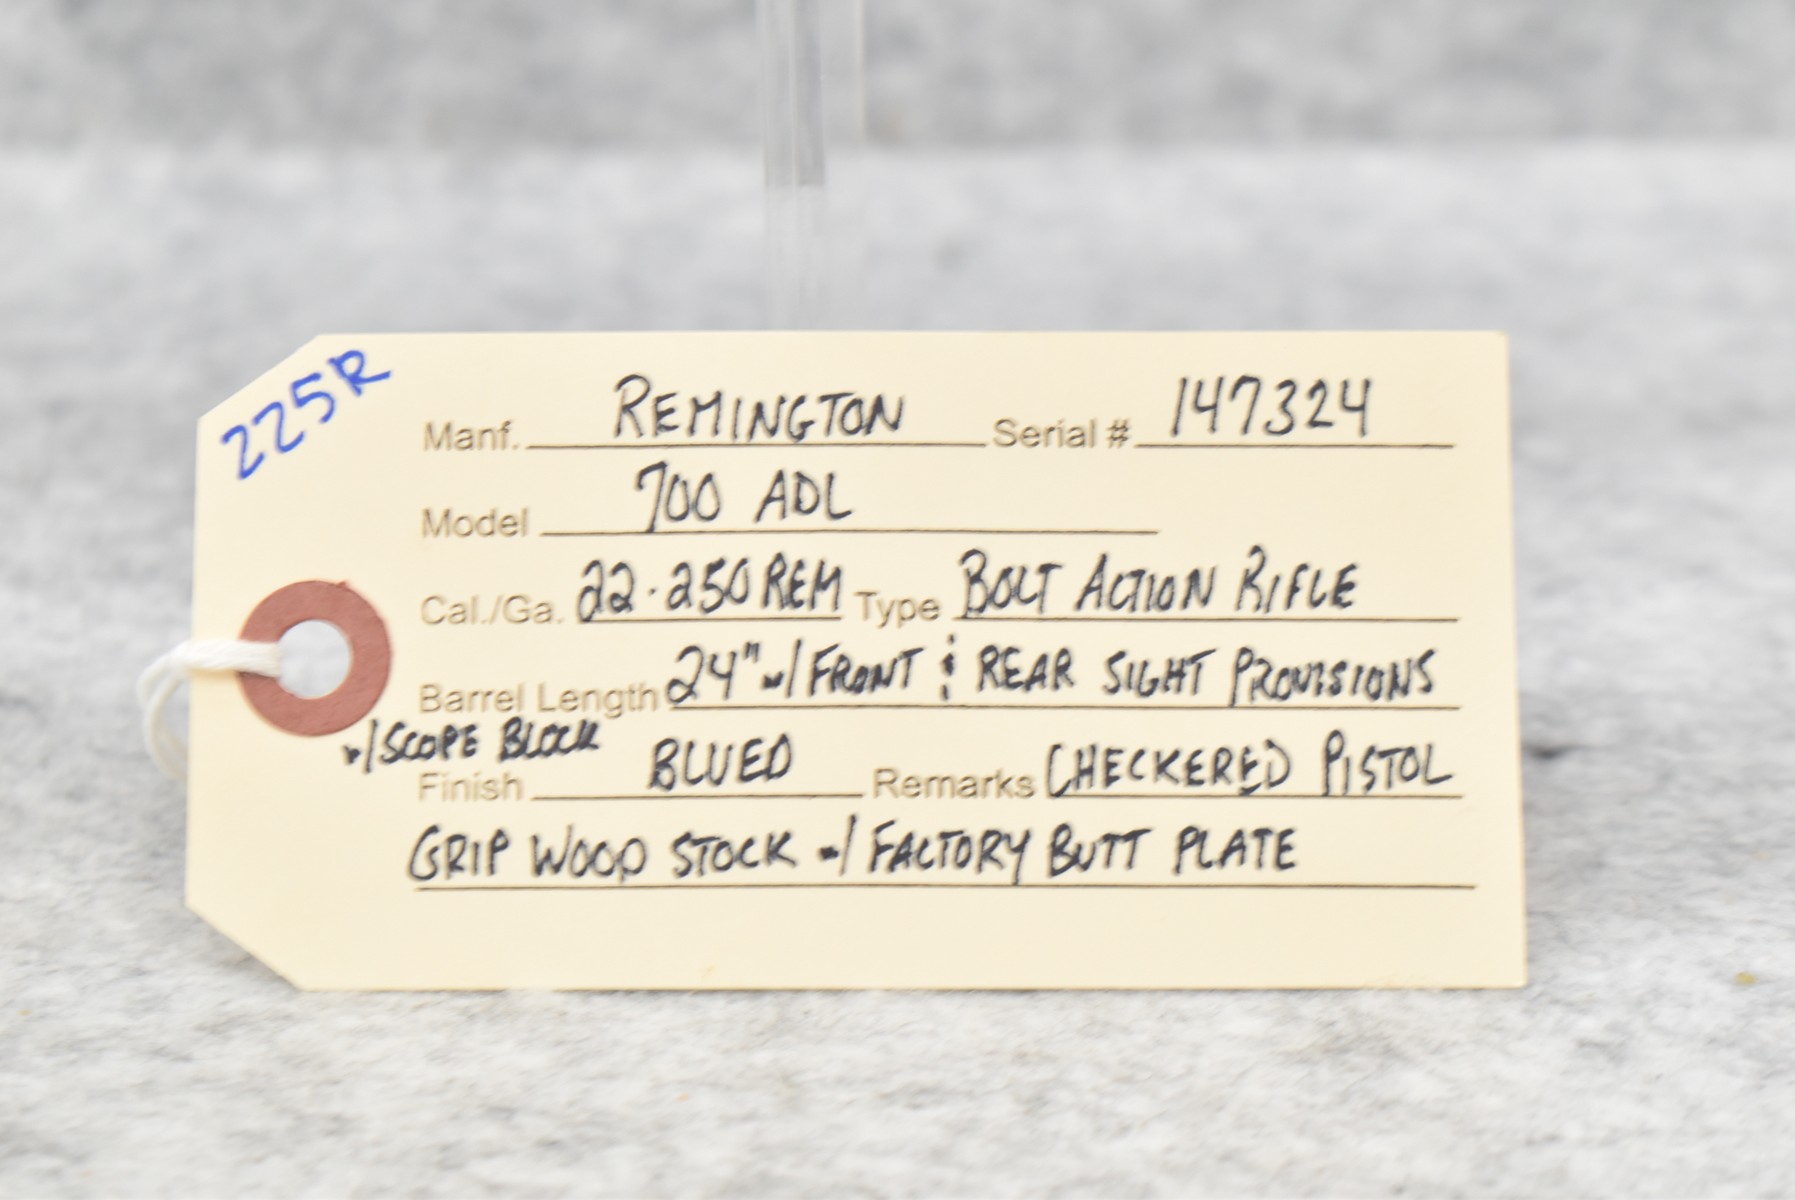 225R
Manf. REMINGTON Serial # 147324
Model 700 ADL
Cal./Ga. 22-250 REM Type BOLT ACTION RIFLE
Barrel Length 24" w/ FRONT & REAR SIGHT PROVISIONS
w/ SCOPE BLOCK
Finish BLUED Remarks CHECKERED PISTOL
GRIP WOOD STOCK w/ FACTORY BUTT PLATE